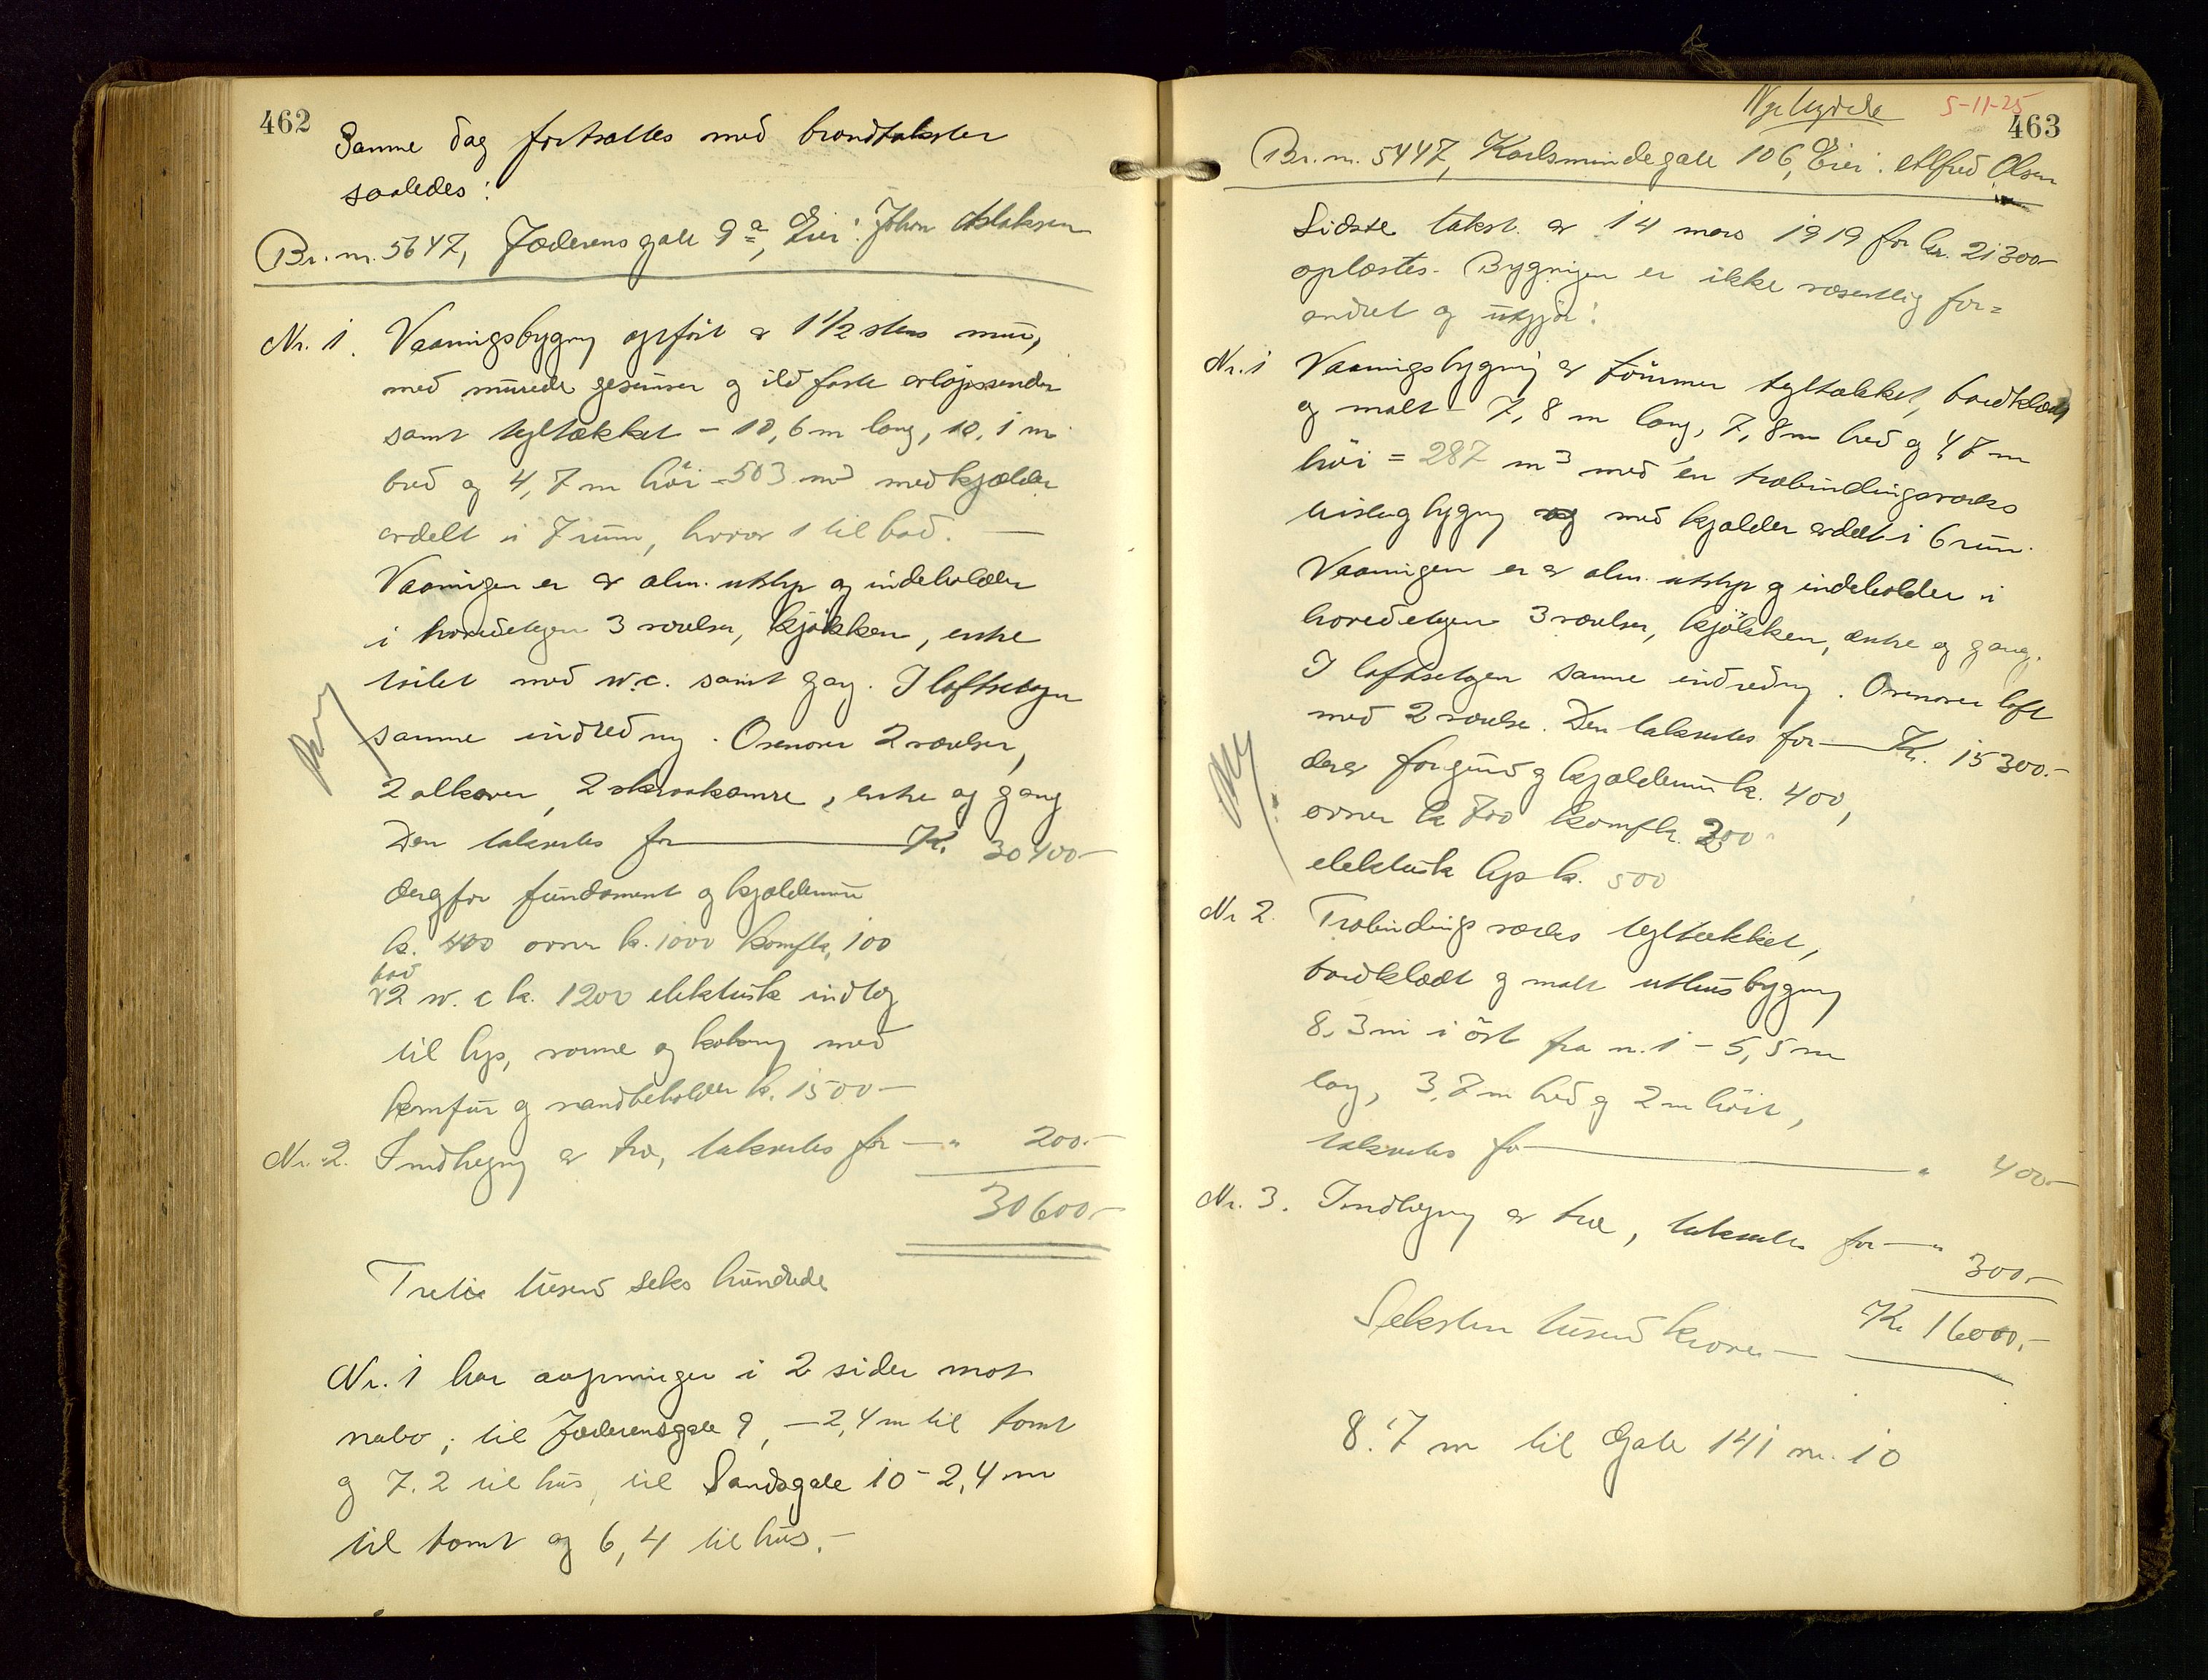 462
Samme dag fortsattes med brandtakster
saaledes:
Br. nr. 5647, Jæderens gate 9a, Eier: John Aslaksen
Nr. 1. Vaaningsbygng opført av 1 1/2 stens mur,
med murede gesimser og ildfaste avløpsrender
samt tegltækket - 10,6 m lang, 10,1 m
bred og 4,7 m høi = 503 m3 med kjælder
avdelt i 7 rum, hvorav 1 til bad. —
Vaaningen er av alm. utstyr og indeholder
i hovedetagen 3 værelser, kjøkken, entre
toilet med w.c. samt gang. I loftsetagen
samme indredng. Ovenover 2 værelser,
2 alkover, 2 skraakamre, entre og gang
Den takseres for — Kr. 30400.—
derav for fundament og kjældermur
kr. 400 ovner kr. 1000 komf kr. 100
bad
2 w.c kr. 1200 elektrisk indlæg
til lys, varme og kokning med
komfur og vandbeholder kr. 1500—
Nr. 2. Indhegng av træ, takseres for — " 200.—
30600.—
Tretti tusend seks hundrede
Nr. 1 har aapninger i 2 sider mot
nabo; til Jæderensgate 9, — 2,4 m til tomt
og 7.2 til hus, til Sandsgate 10 - 2,4 m
til tomt og 6,4 til hus. —
5-11-25
463
Br. nr. 5447, Karlsmindegate 106, Eier: Alfred Olsen
Sidste takst av 14 mars 1919 for kr. 21300—
oplæstes. Bygningen er ikke væsentlig for=
andret og utgjør:
Nr. 1 Vaaningsbygning av tømmer tegltækket, bordklædt
og malt - 7,8 m lang, 7,8 m bred og 4,7 m
høi = 287 m3 med en træbindingsverks
tilbygng og med kjælder avdelt i 6 rum.
Vaaningen er av alm. utstyr og indeholder i
hovedetagen 3 værelser, kjøkken, entre og gang.
I loftsetagen samme indredng. Ovenover loft
med 2 værelser. Den takseres for — Kr. 15300.—
derav for grund og kjældermur kr. 400,
ovner kr 700 komf kr. 200
elektrisk lys kr. 500
Nr 2. Træbindings verks tegltækket,
bordklædt og malt uthusbygng
8,3 m i øst fra nr. 1 - 5,5 m
lang, 3,7 m bred og 2 m høit,
takseres for — " 400—
Nr. 3. Indhegng av træ, takseres for — " 300.—
Seksten tusend kroner — Kr. 16000.—
8.7 m til Gate 141 nr. 10